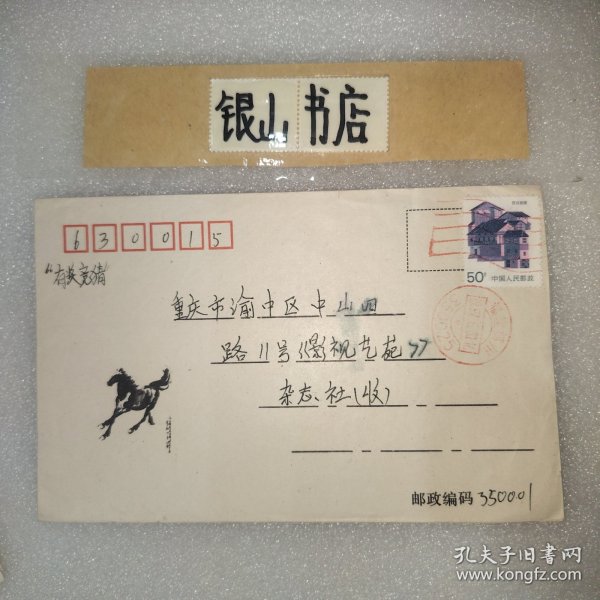 银山书店
630015
"有奖竞猜"
50分
中国人民邮政
重庆市渝中区中山四
路11号《影视艺苑》
杂志社(收)
邮政编码 350001
孔夫子旧书网
www.kongfz.com